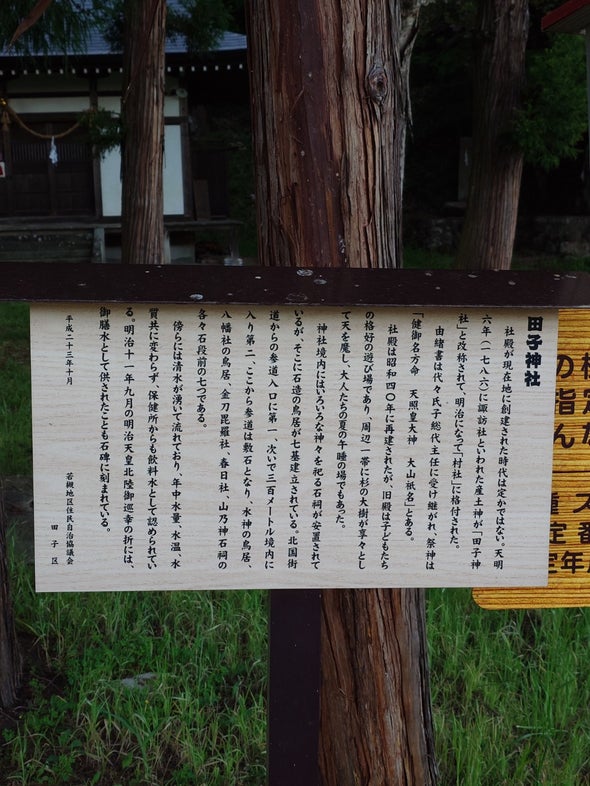 田子神社
社殿が現在地に創建された時代は定かではない。天明
六年(一七八六)に諏訪社といわれた産土神が「田子神
社」と改称されて、明治になって「村社」に格付された。
由緒書は代々氏子総代主任に受け継がれ、祭神は
「健御名方命 天照皇大神 大山祇名」とある。
社殿は昭和四〇年に再建されたが、旧殿は子どもたち
の格好の遊び場であり、周辺一帯に杉の大樹が亭々とし
て天を魔し、大人たちの夏の午睡の場でもあった。
神社境内にはいろいろな神々を祀る石祠が安置されて
いるが、そこに石造の鳥居が七基建立されている。北国街
道からの参道入口に第一、次いで三百メートル境内に
入り第二、ここから参道は敷石となり、水神の鳥居、
八幡社の鳥居、金刀毘羅社、春日社、山乃神石祠の
各々石段前の七つである。
傍らには清水が湧いて流れており、年中水量、水温、水
質共に変わらず、保健所からも飲料水として認められてい
る。明治十一年九月の明治天皇北陸御巡幸の折には、
御膳水として供されたことも石碑に刻まれている。
平成二十三年十月
若槻地区住民自治協議会
田子区
の指ん